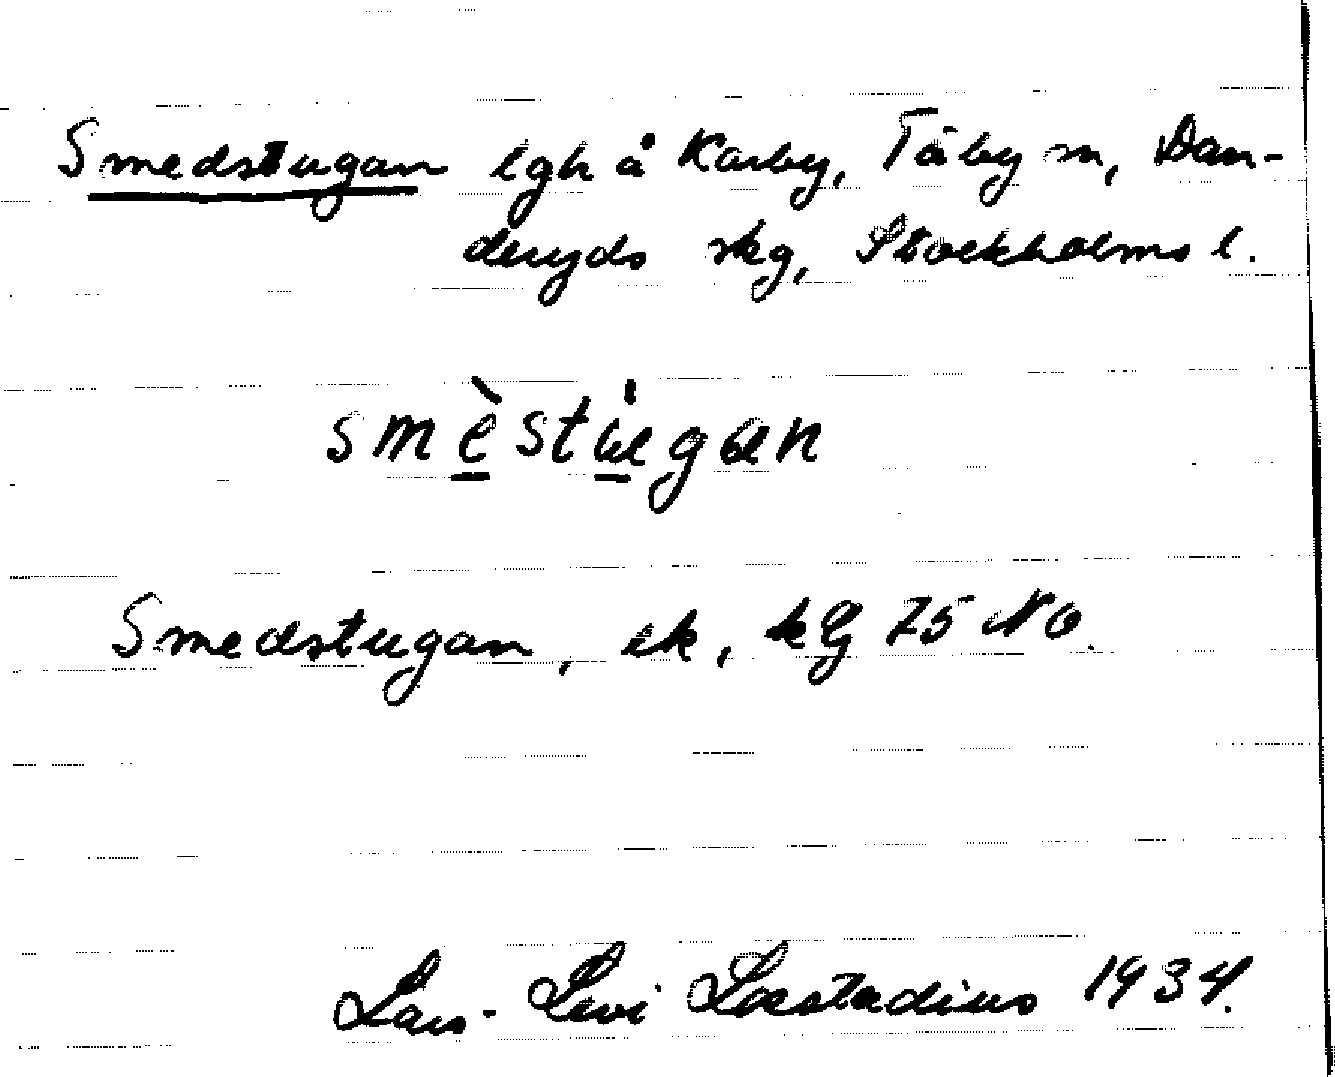 Smedstugan lgh å Karby, Täby sn, Dan-
deryds skg, Stockholms l.
smèstu̇gan
Smedstugan, ek, kg 75 NO.
Lars-Levi Læstadius 1934.